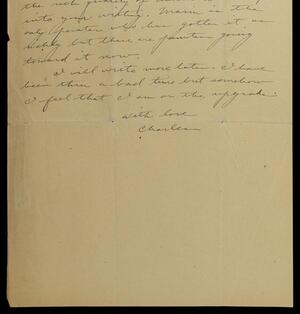 the rich quality of
into your writing. Mann is the
only operator who has gotten it, as
lately but there are painters going
toward it now.
I will write more later. I have
been thru a bad time but somehow
I feel that I am on the upgrade.
With love
Charles